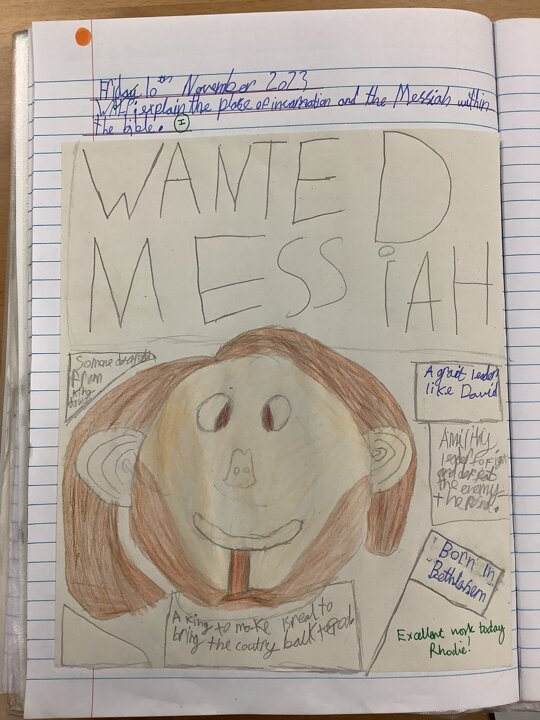 Friday 10th November 2023
WALT: explain the place of incarnation and the Messiah within
the bible. I
WANTED
MESSiAH
Somone
From
King
David
A great leader
like David
Amilitry
leader to Fight
and defeat
the enemy
the
Born in
Bethlahem
A King to make Isreal to
bring the coutry back to
Excellent work today
Rhodie!